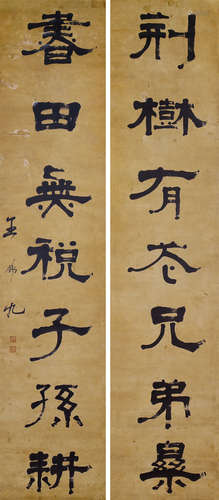 荆樹有花兄弟樂
書田無税子孫耕
王九